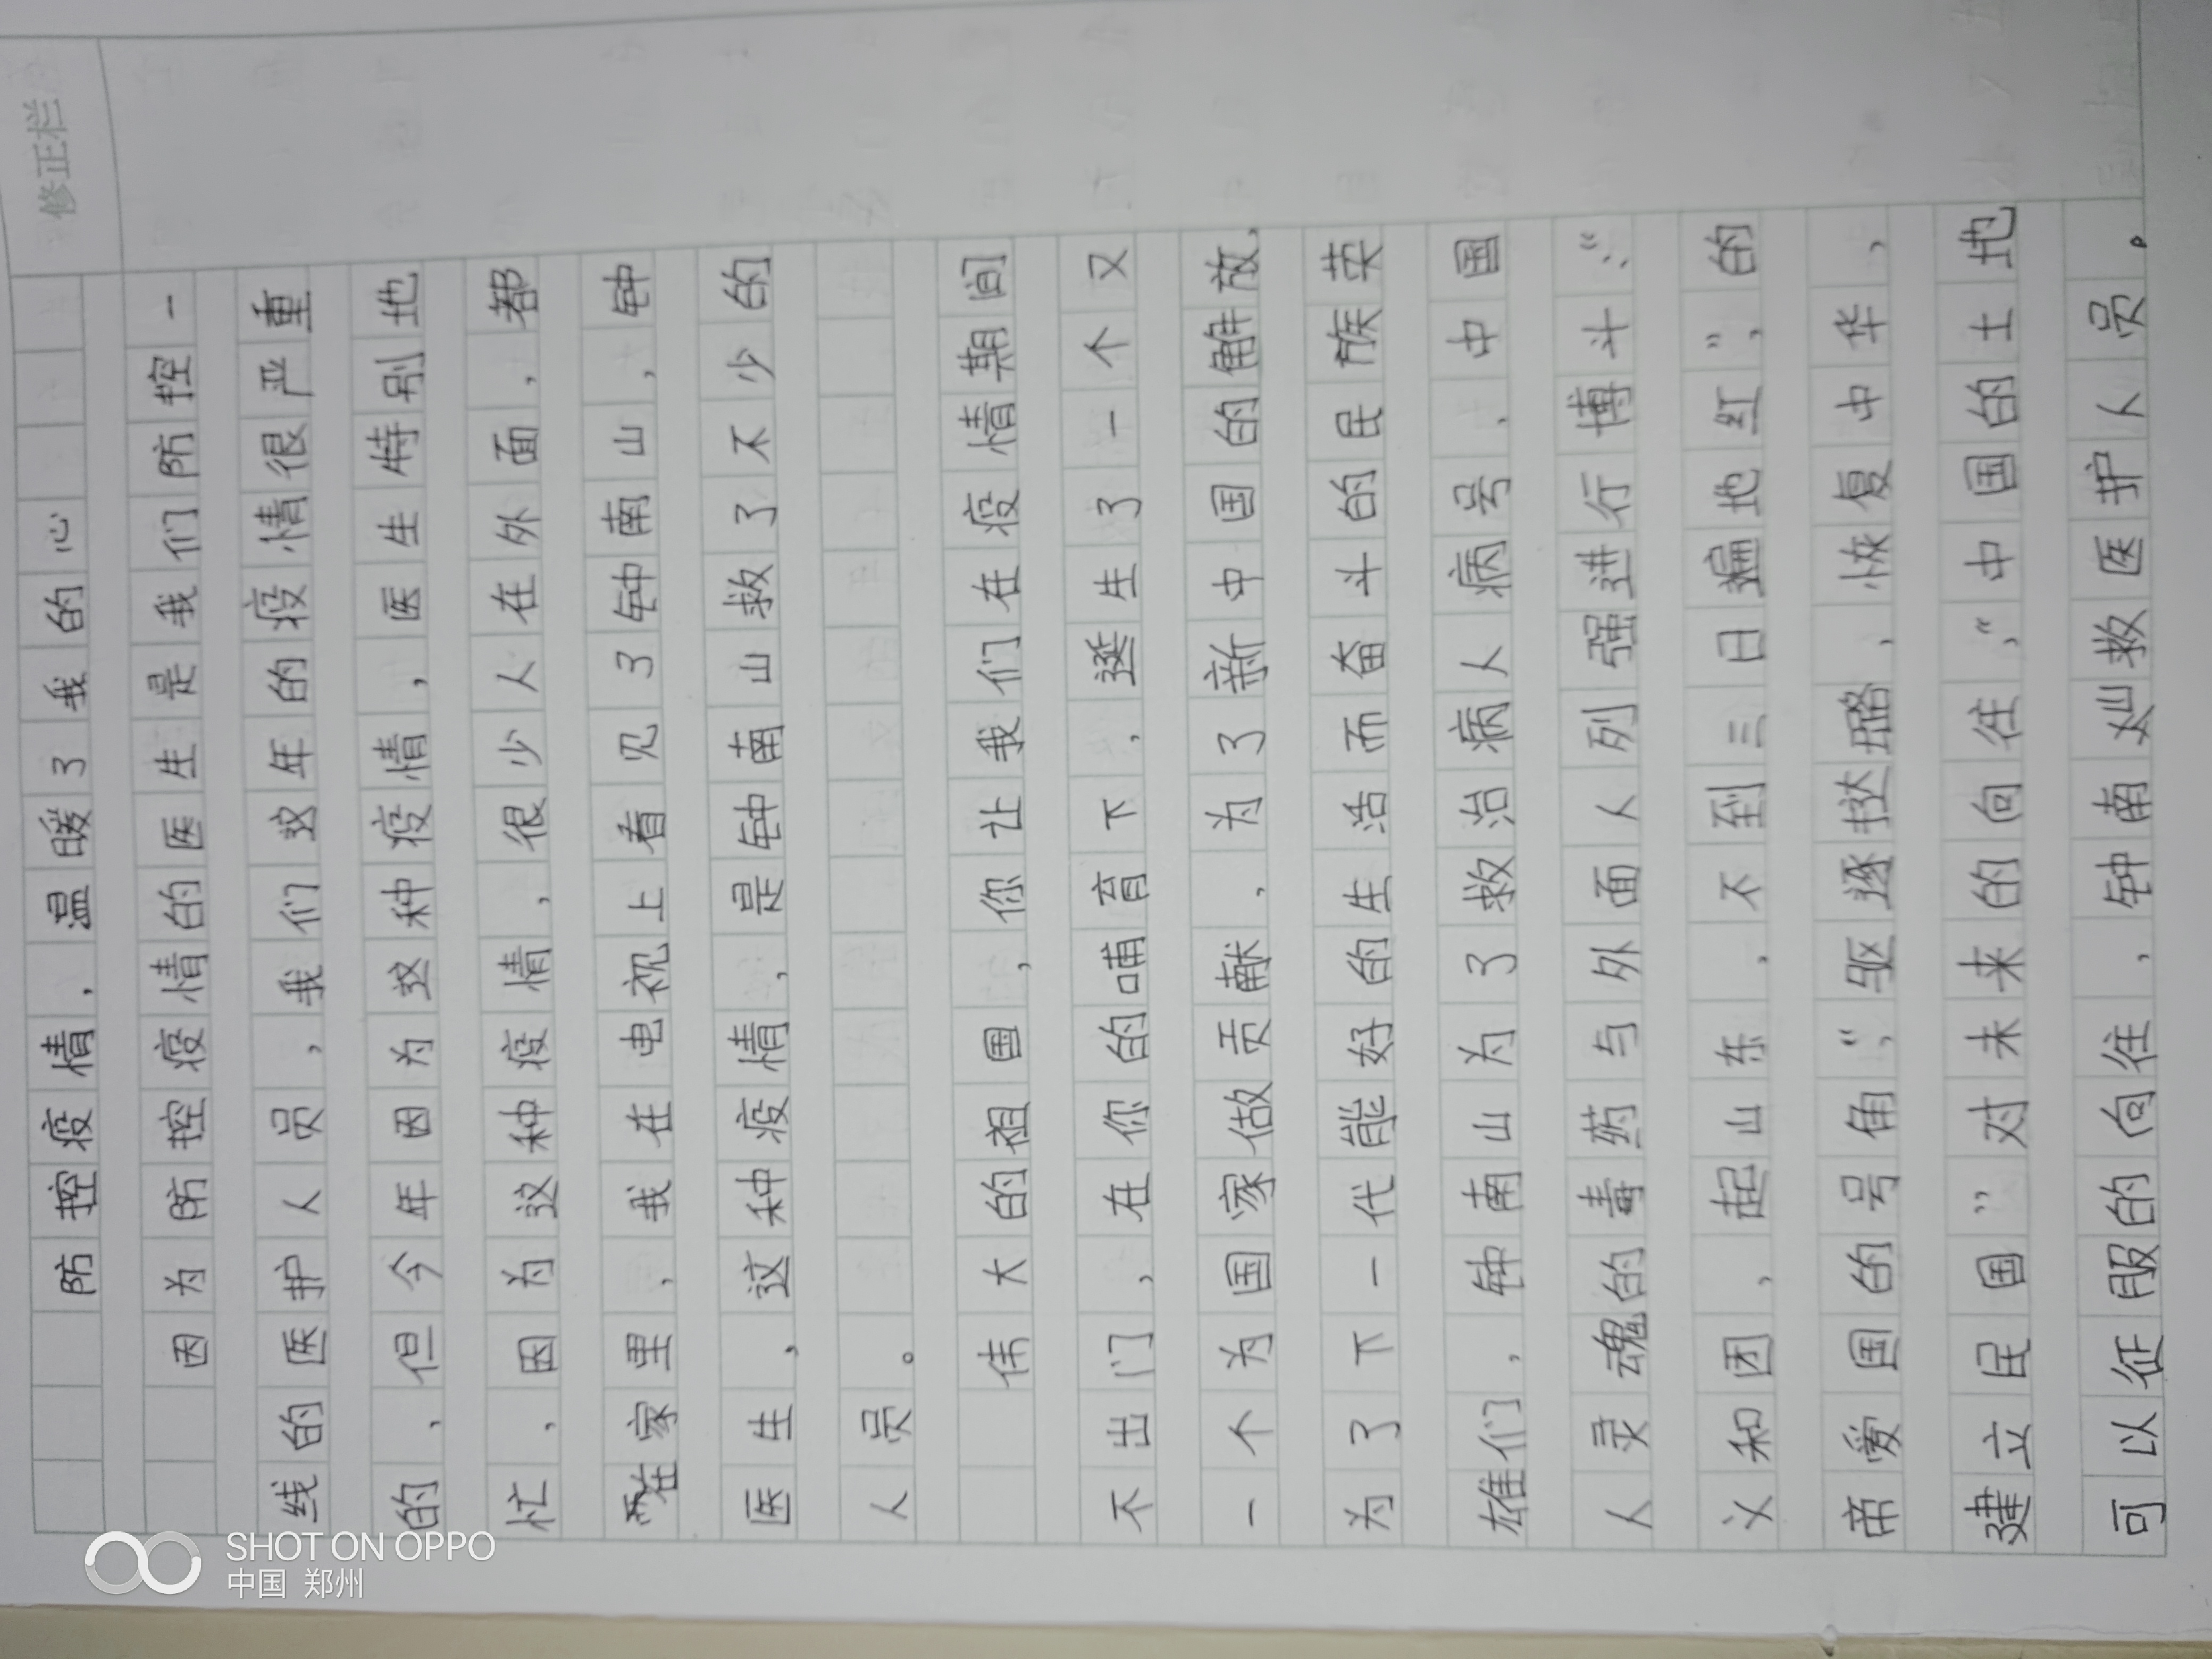 修正栏
防控疫情，温暖了我的心
因为防控疫情的医生是我们防控一
线的医护人员，我们这年的疫情很严重
的，但今年因为这种疫情，医生特别地
忙，因为这种疫情，很少人在外面，都
在家里，我在电视上看见了钟南山，钟
医生，这种疫情，是钟南山救了不少的
人员。
伟大的祖国，你让我们在疫情期间
不出门，在你的哺育下，诞生了一个又
一个为国家做贡献，为了新中国的解放，
为了下一代能好的生活而奋斗的民族英
雄们，钟南山为了救治病人病号，中国
人灵魂的毒药与外面人列强进行博斗“
义和团，起山东，不到三日遍地红”，的
帝爱国的号角“，驱逐挞踏，恢复中华，
建立民国”对未来的向往，“中国的土地
可以征服的向往，钟南山救医护人员。
SHOT ON OPPO
中国 郑州